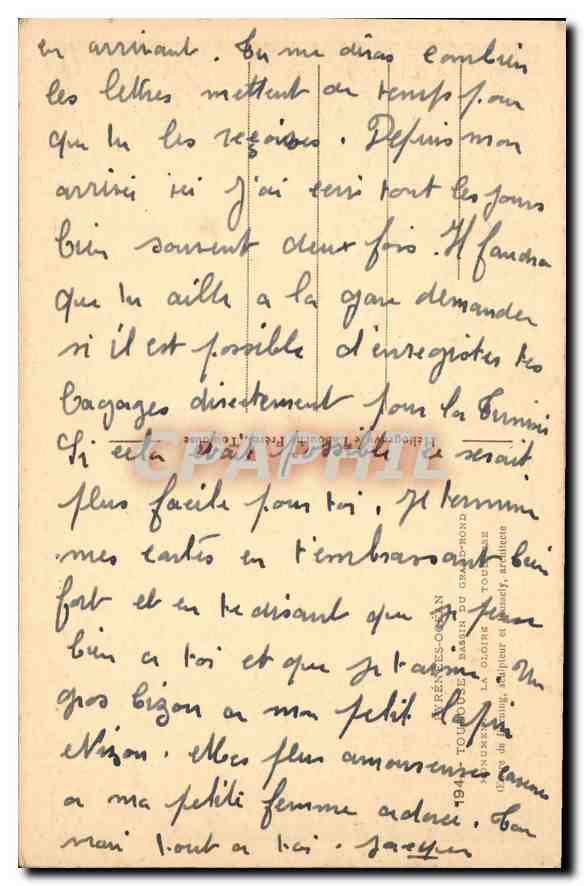 en arrivant. Tu me diras combien
les lettres mettent de temps pour
que tu les reçoives. Depuis mon
arrivée ici j'ai ecris tout les jours
bien souvent deux fois. Il faudra
que tu aille a la gare demander
si il est possible d'enregistrer tes
bagages directement pour la Tunisie
Si cela etait possible ce serait
plus facile pour toi. Je termine
mes cartes en t'embrassant bien
fort et en te disant que je pense
bien a toi et que je t'aime. Un
gros bizou a mon petit lapin
Mes plus amoureuses caresses
a ma petite femme adorée. Ton
mari tout a toi. Jacques
CPAPHIL
Héliogravure Labouche Frères, Toulouse
PYRÉNÉES-OCÉAN
194 - TOULOUSE - BASSIN DU GRAND-ROND
MONUMENT A LA GLOIRE DE TOULOUSE
sculpteur et Jaussely, architecte